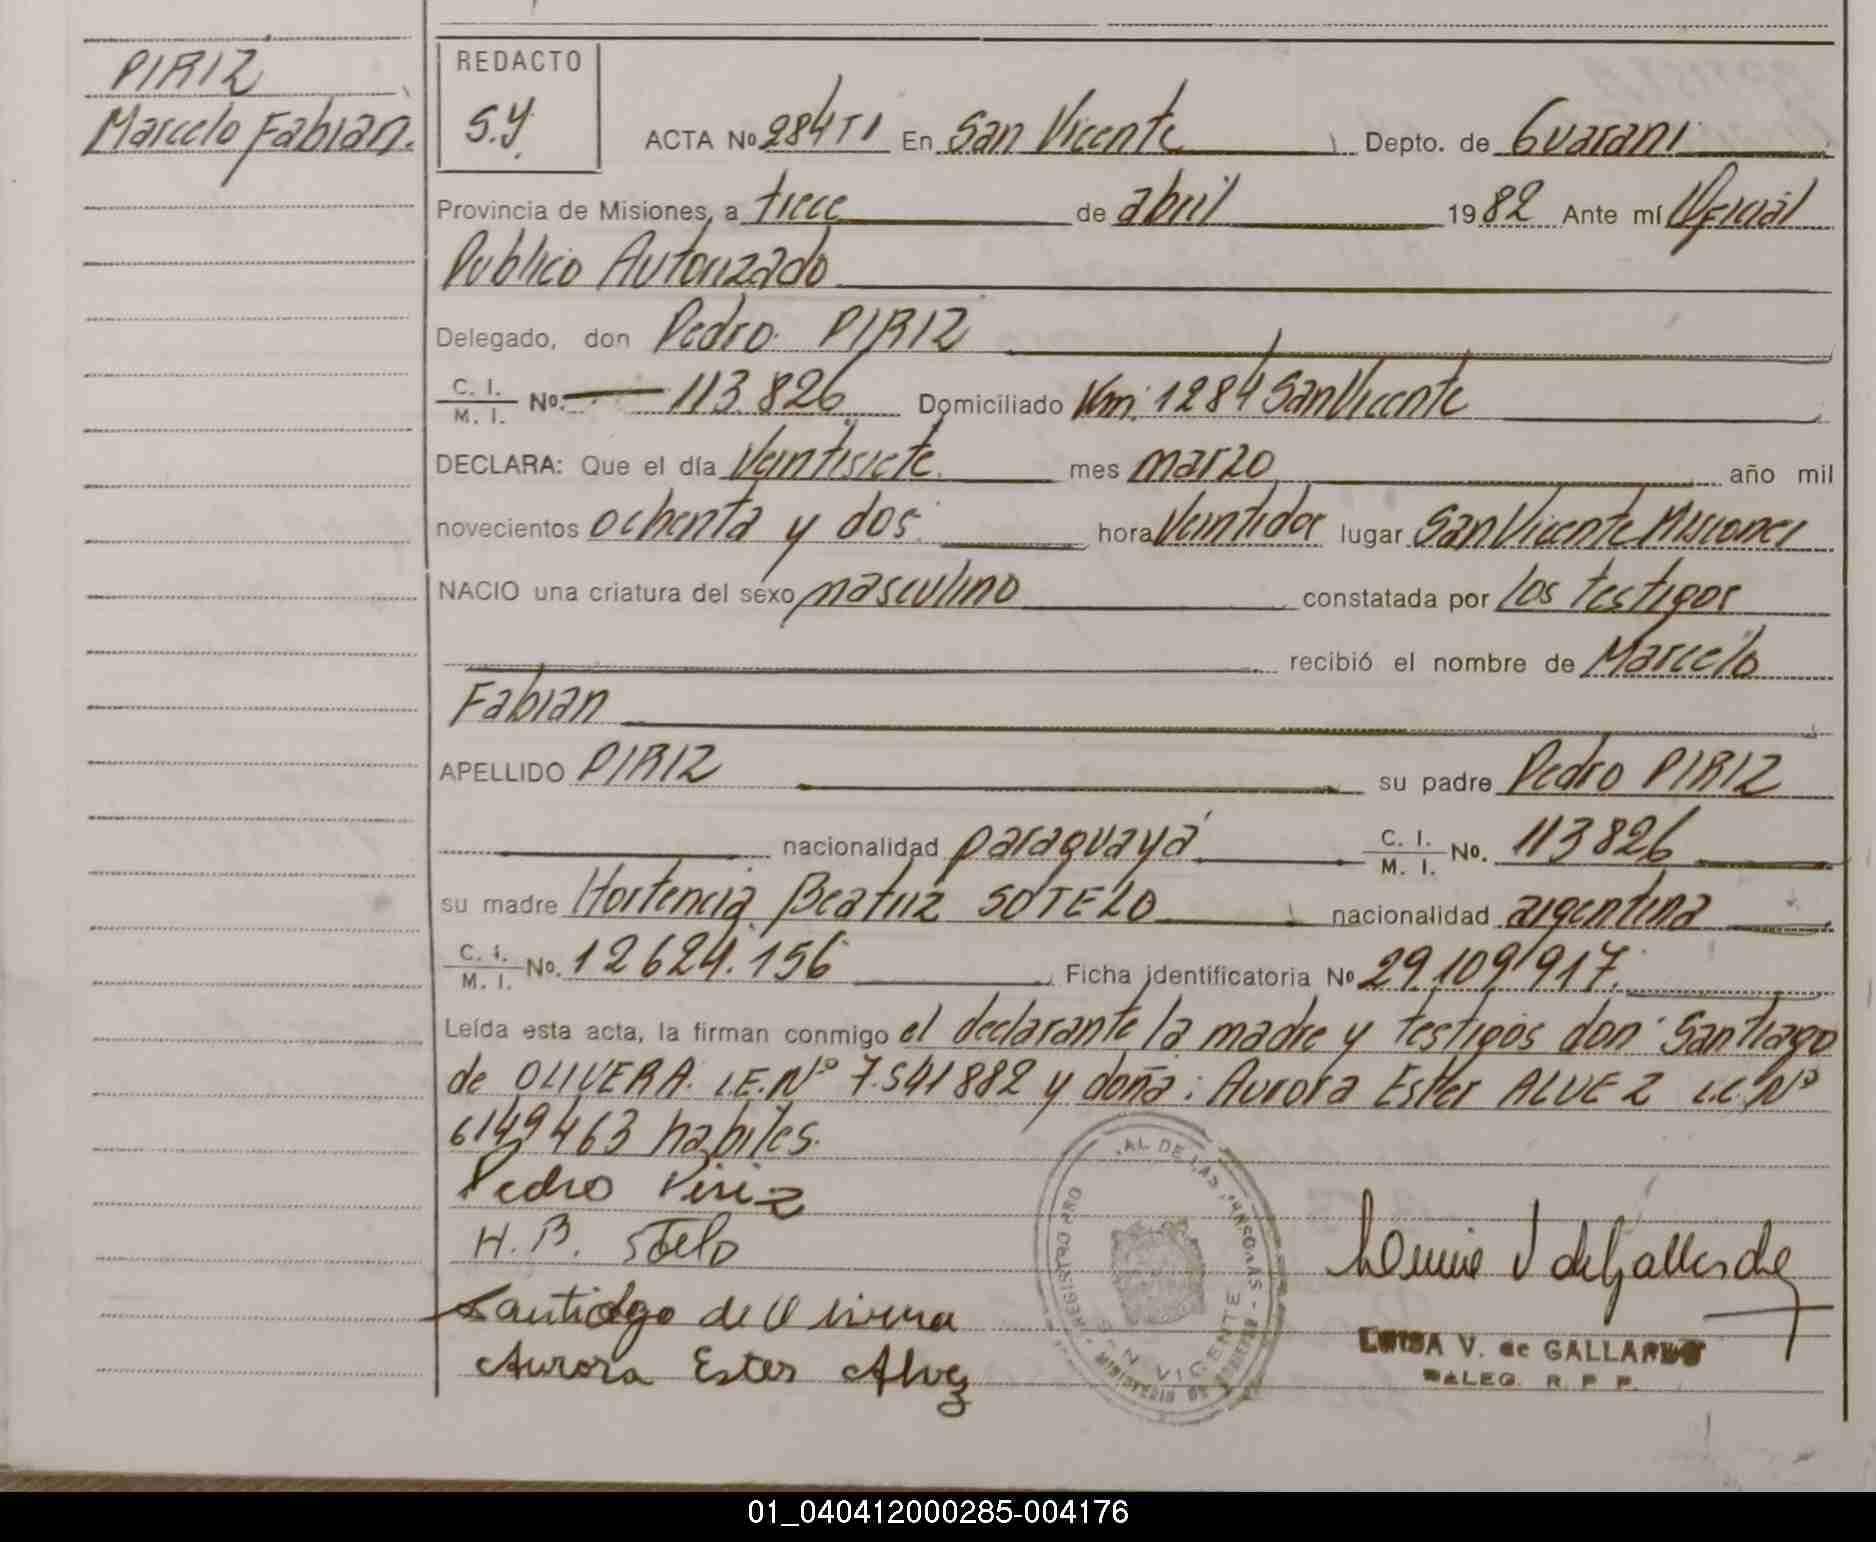 PIRIZ
Marcelo Fabian.
REDACTO
S.Y.
ACTA No 284 T I En San Vicente Depto. de Guarani
Provincia de Misiones, a trece de abril 1982 Ante mí Oficial
Publico Autorizado
Delegado, don Pedro PIRIZ
C. I. / M. I. No. 113.826 Domiciliado Km. 1284 San Vicente
DECLARA: Que el día Veintisiete mes marzo año mil
novecientos ochenta y dos hora Veintidos lugar San Vicente Misiones
NACIO una criatura del sexo masculino constatada por los testigos
recibió el nombre de Marcelo
Fabian
APELLIDO PIRIZ su padre Pedro PIRIZ
nacionalidad paraguaya C. I. / M. I. No. 113826
su madre Hortencia Beatriz SOTELO nacionalidad argentina
C. I. / M. I. No. 12624.156 Ficha identificatoria No 29.109.917.
Leída esta acta, la firman conmigo el declarante la madre y testigos don Santiago
de OLIVERA. L.E.Nº 7.541882 y doña: Aurora Ester ALVEZ L.C.Nº
6149463 habiles.
Pedro Piriz
H. B. Sotelo
Santiago de Olivera
Aurora Ester Alvez
V de Gallardo
LUISA V. de GALLARDO
DALEG. R. P. P.
REGISTRO PRO AL DE LAS PERSONAS
SAN VICENTE
01_040412000285-004176